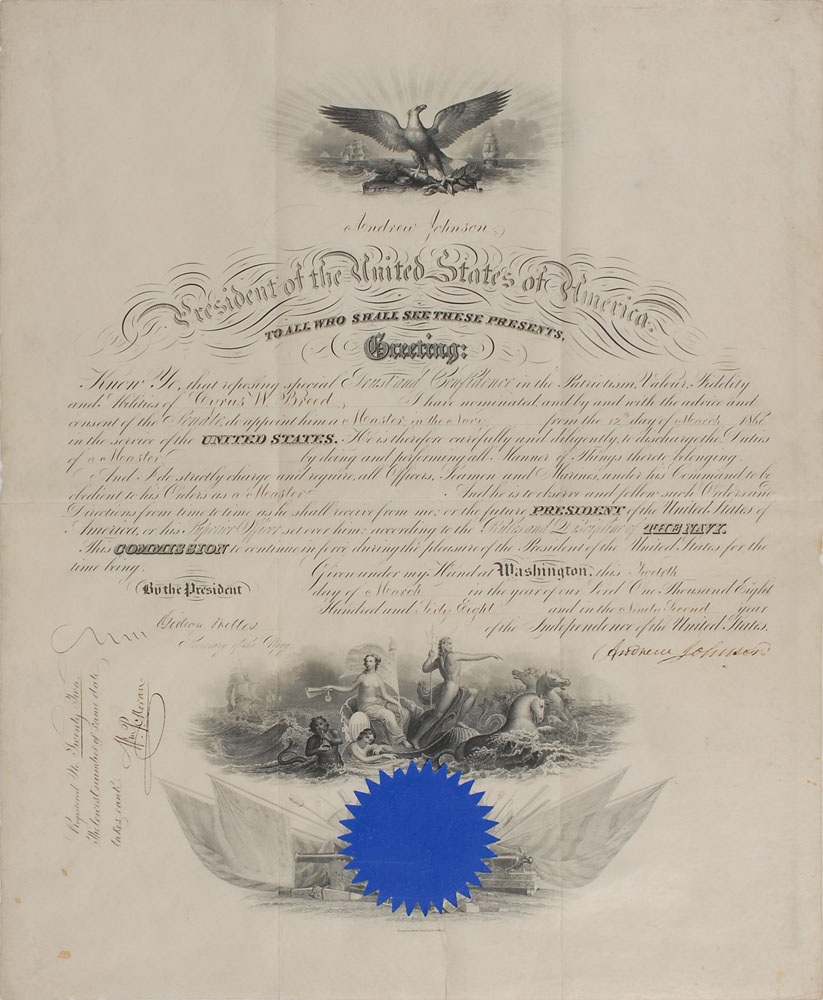 Andrew Johnson,
President of the United States of America.
TO ALL WHO SHALL SEE THESE PRESENTS,
Greeting:
Know Ye, that reposing special Trust and Confidence in the Patriotism, Valour, Fidelity
and Abilities of Cyrus W. Breed I have nominated, and by and with the advice and
consent of the Senate, do appoint him a Master in the Navy from the 12th day of March 1868
in the service of the UNITED STATES. He is therefore carefully and diligently, to discharge the Duties
of a Master by doing and performing all Manner of Things thereto belonging.
And I do strictly charge and require, all Officers, Seamen and Marines, under his Command to be
obedient to his Orders as a Master And he is to observe and follow such Orders and
Directions from time to time as he shall receive from me, or the future PRESIDENT of the United States of
America, or his Superior Officer set over him, according to the Rules and Discipline of THE NAVY.
This COMMISSION to continue in force during the pleasure of the President of the United States for the
time being.
Given under my Hand at Washington, this Twelfth
By the President
day of March in the year of our Lord One Thousand Eight
Hundred and Sixty Eight and in the Ninety Second year
of the Independence of the United States.
Gideon Welles
Secretary of the Navy.
Andrew Johnson
Registered No. Twenty Two
The lowest number of same date
takes rank.